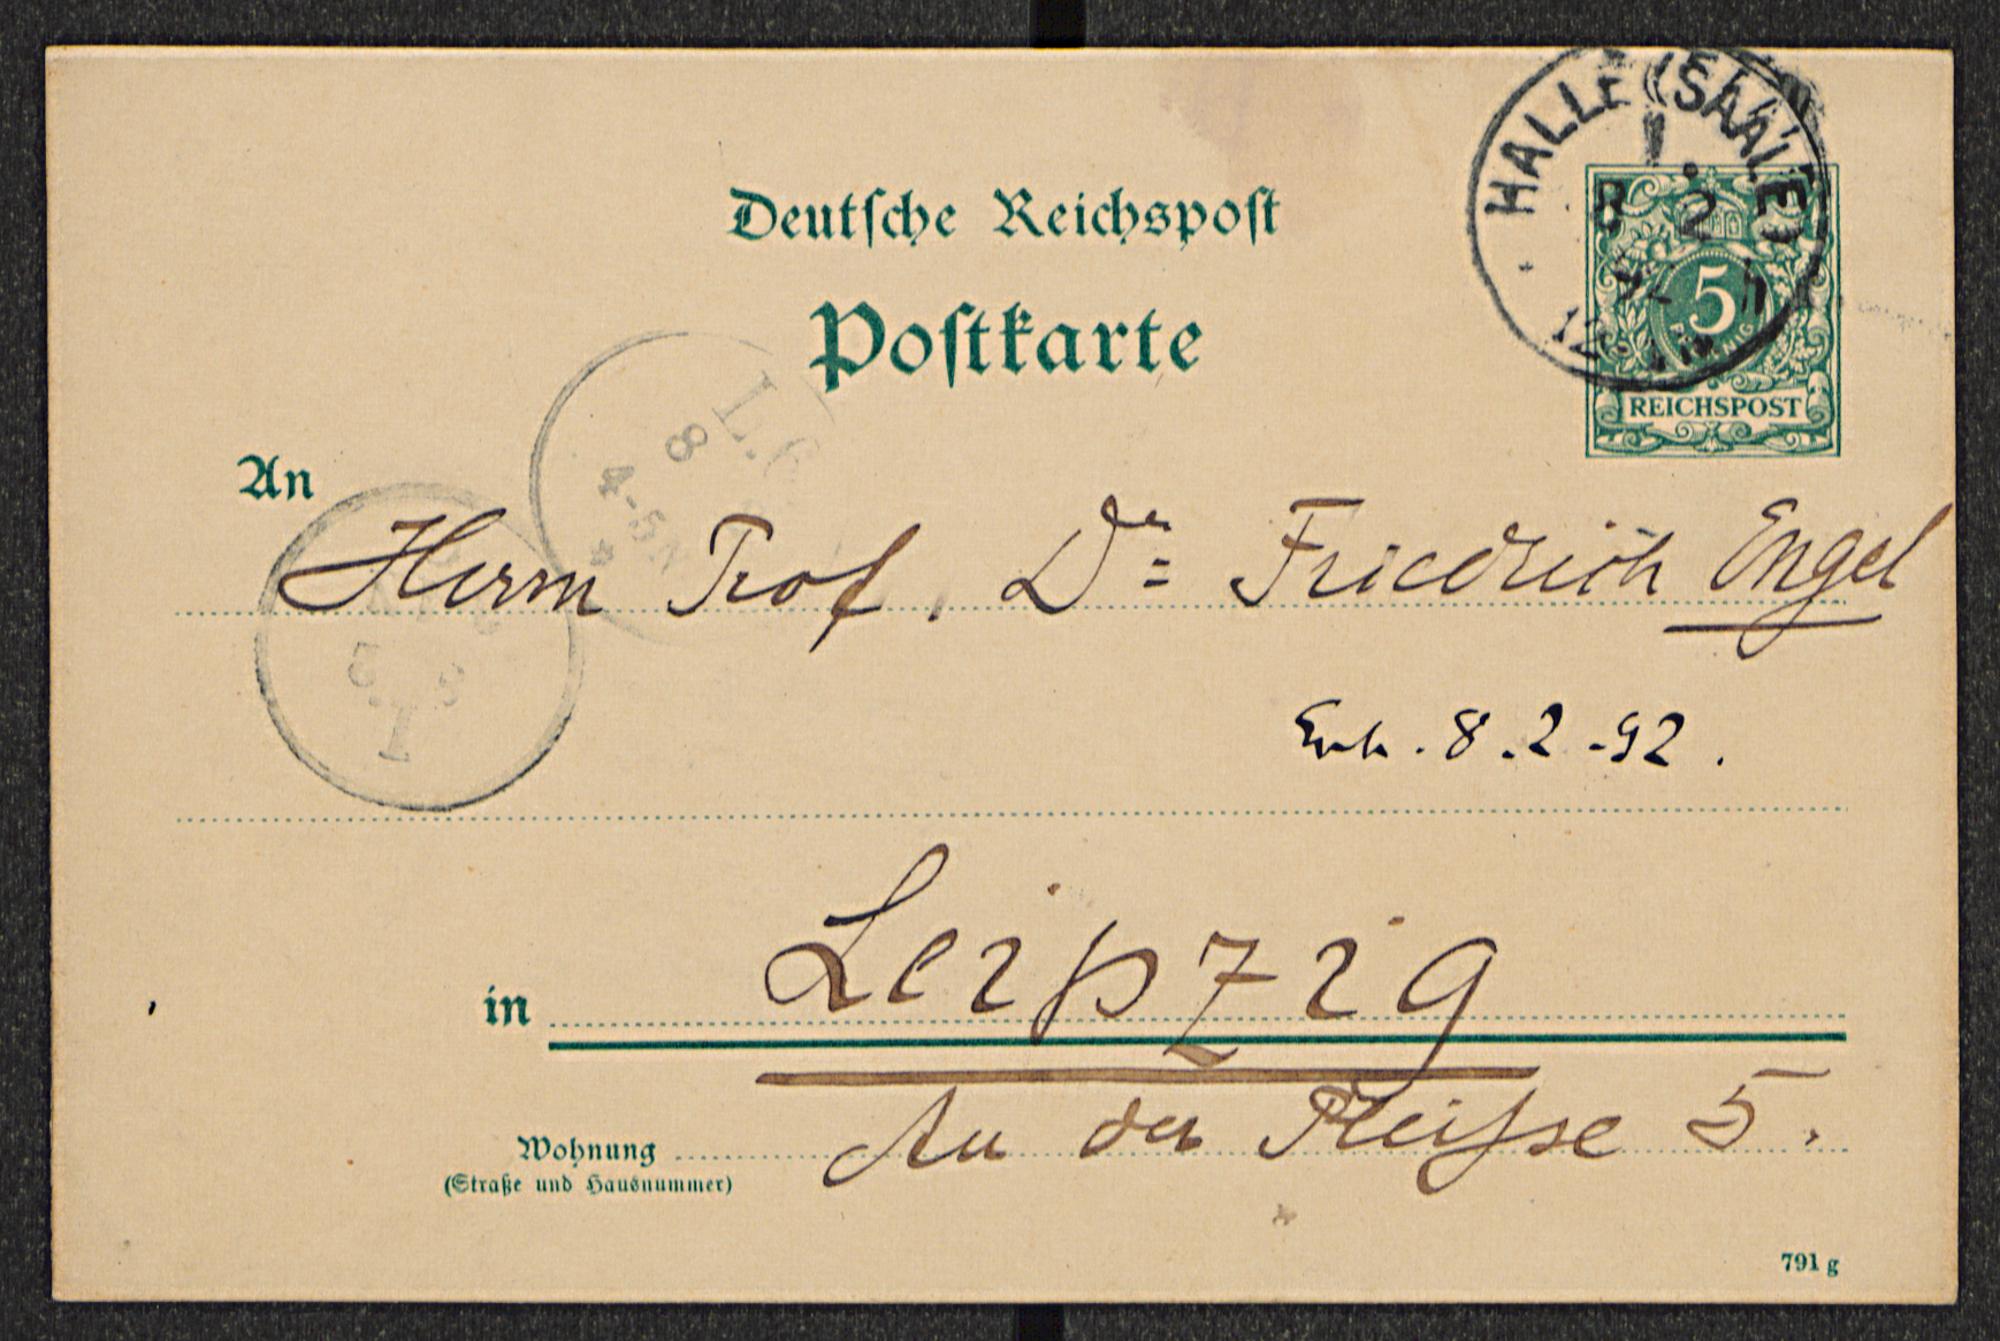 HALLE (SAALE)
1.
8 2
92
12-1N
Deutsche Reichspost
Postkarte
5
PFENNIG
REICHSPOST
8
4-5N
An
Herrn Prof. Dr. Friedrich Engel
8.2.92.
in Leipzig
An der Pleisse 5.
Wohnung
(Straße und Hausnummer)
791 g